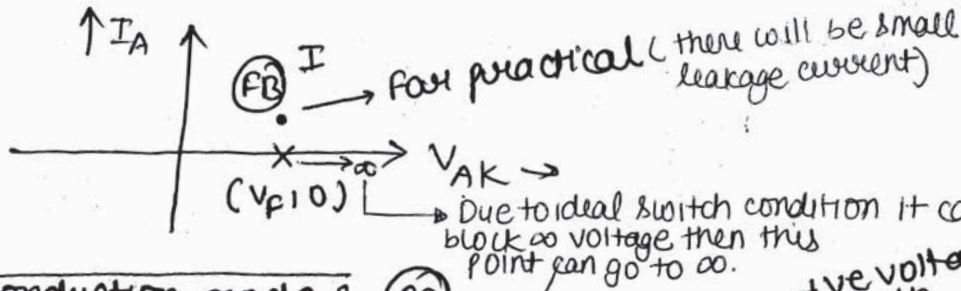 ↑ I_A
FB I
For practical ( there will be small
leakage current)
V_AK →
(V_F, 0) ∞
Due to ideal switch condition it
block ∞ voltage then this
point can go to ∞.